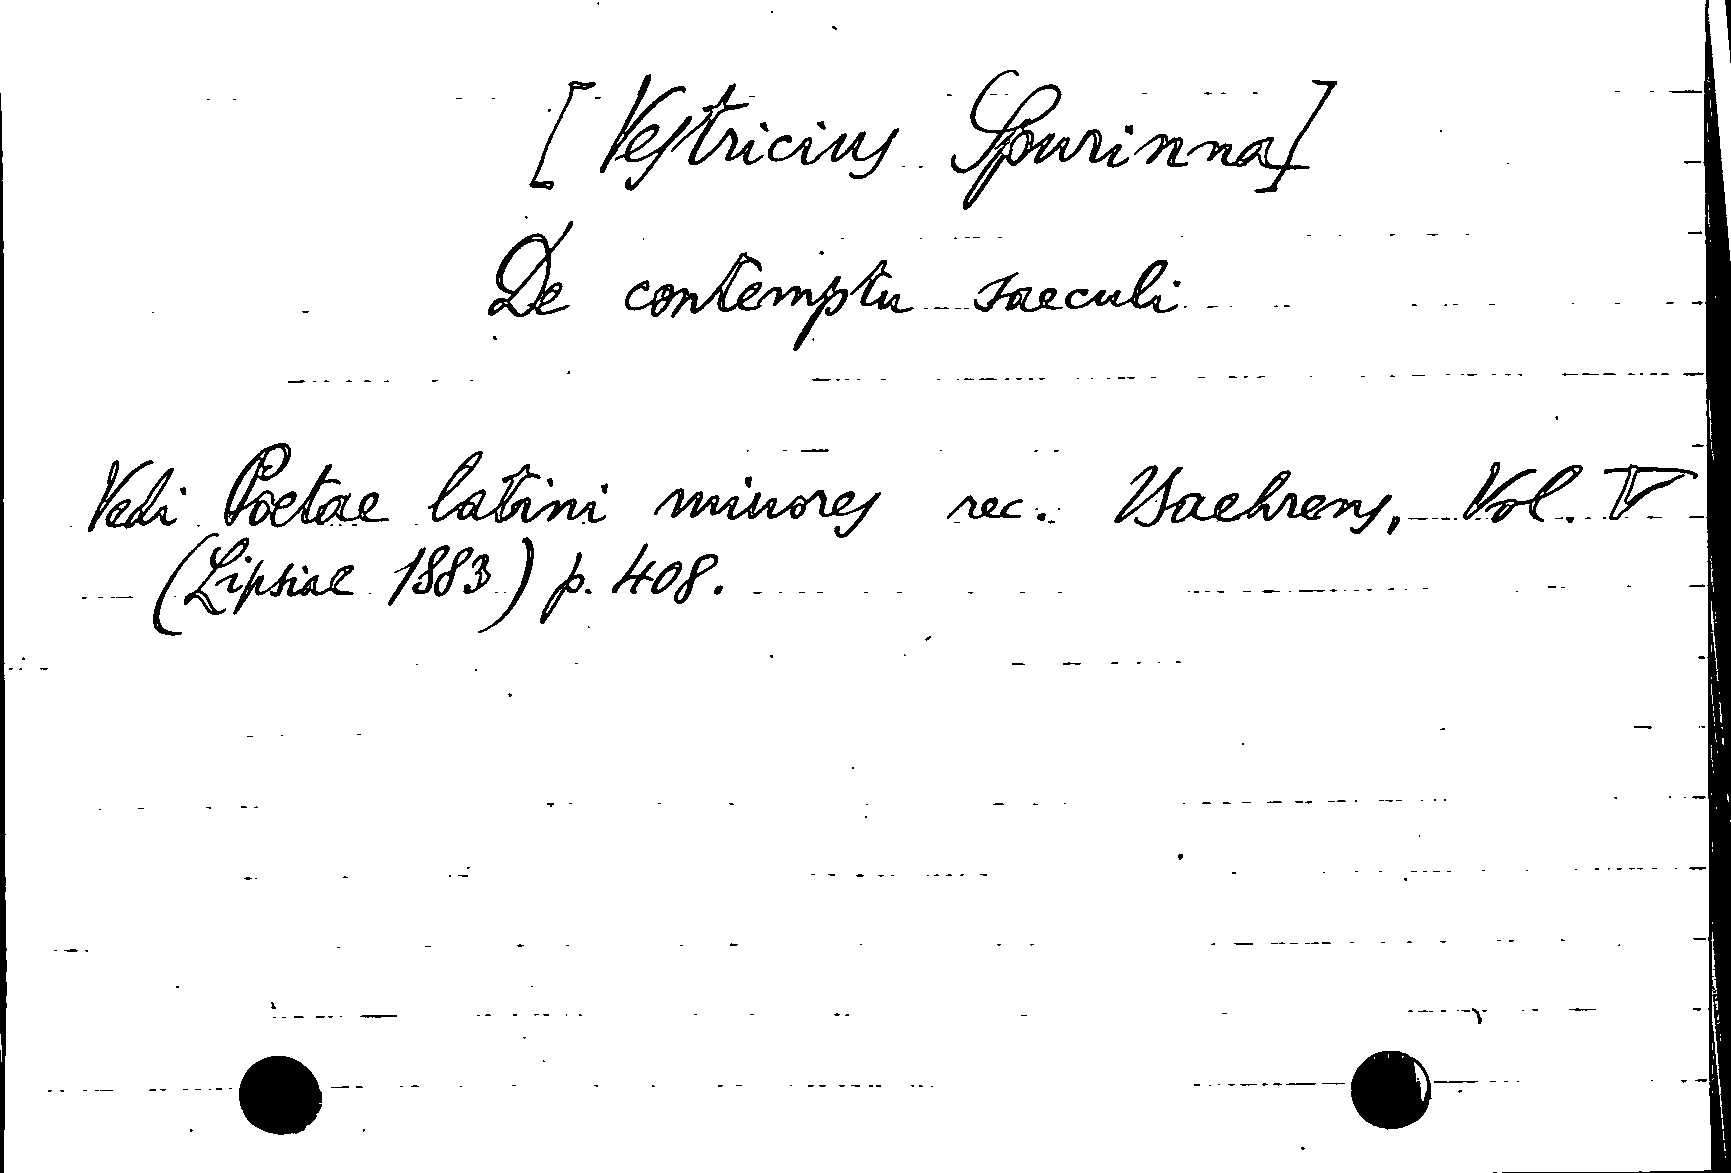 [Vestricius Spurinna]
De contemptu saeculi
Vedi Poetae latini minores rec. Baehrens, Vol. V
(Lipsiae 1883) p. 408.